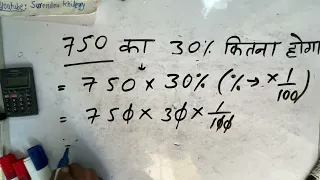 Youtube: Surendra Khilery
750 का 30% कितना होगा
= 750 × 30% (% → × 1/100)
= 750 × 30 × 1/100
=